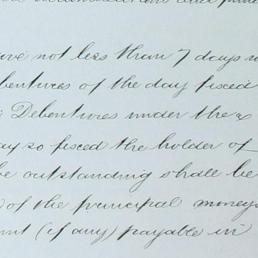 not less than 7 days
of the day fixed
Debentures under the
so fixed the holder of
outstanding shall be
of the principal moneys
(if any) payable in